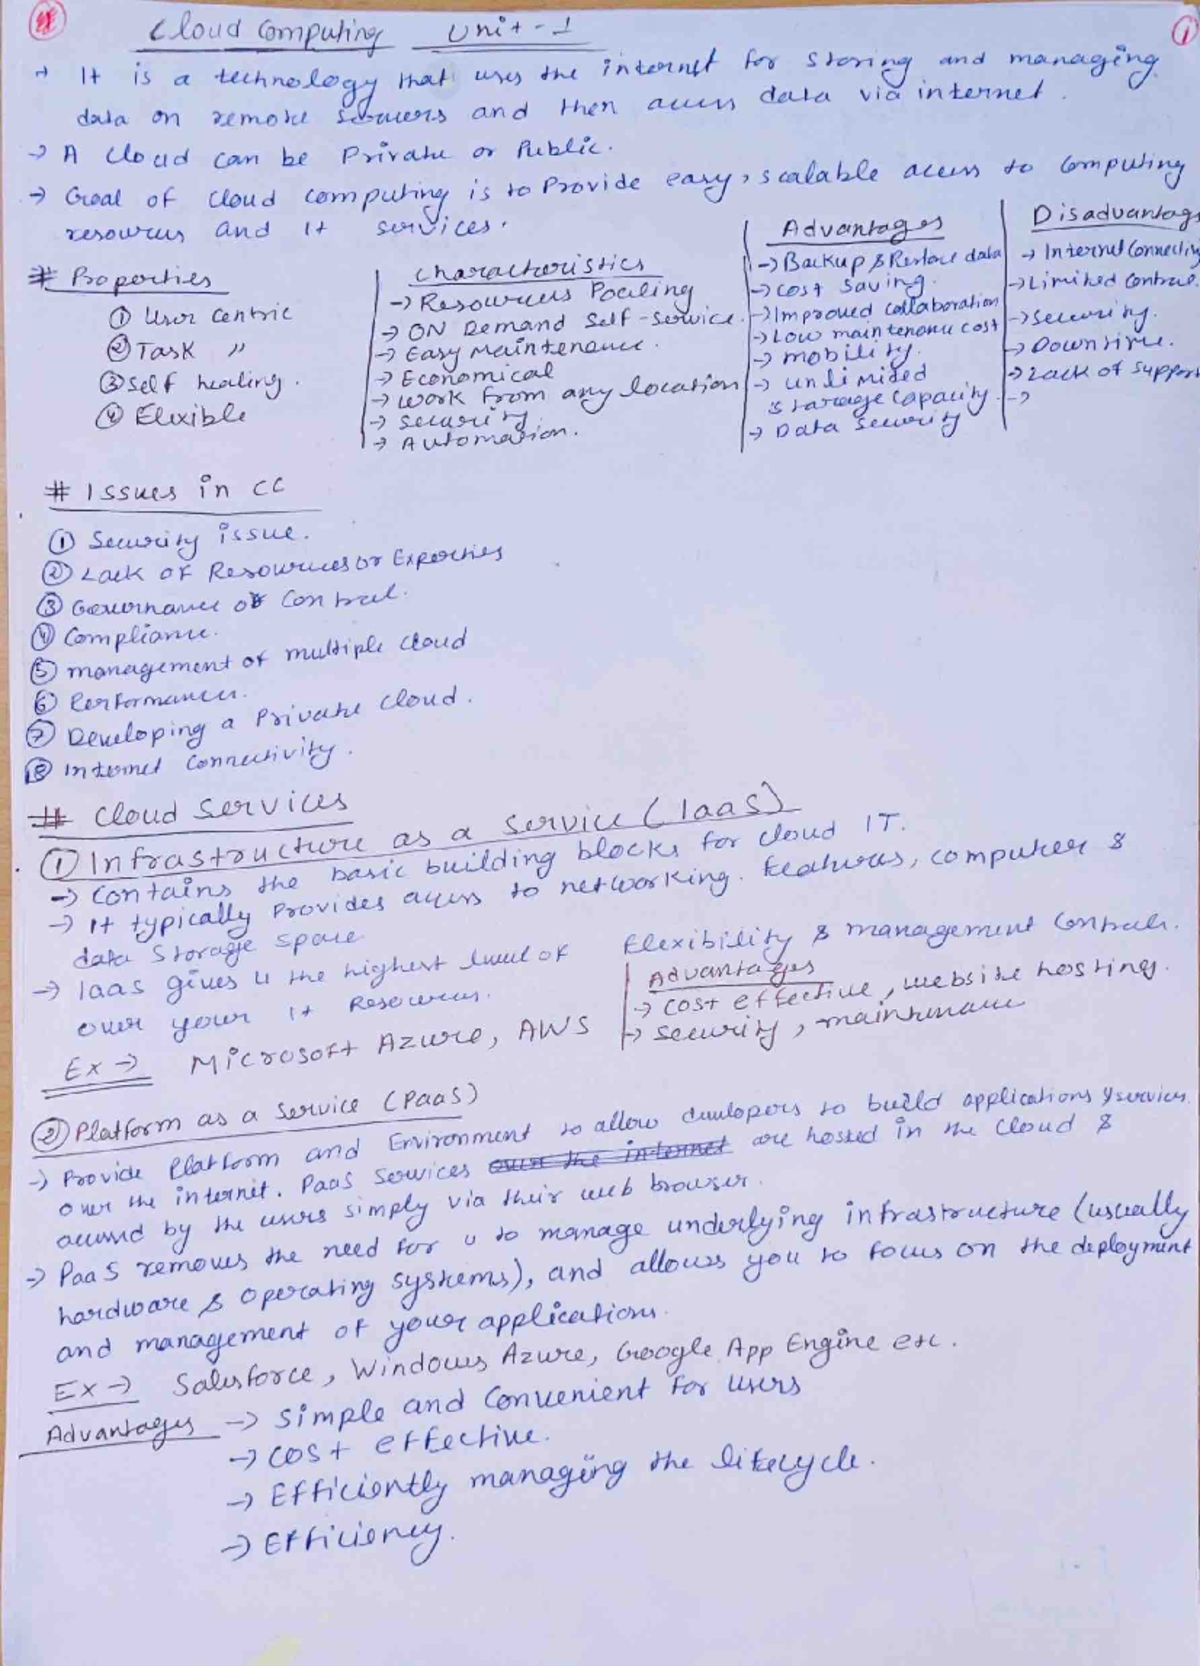 Cloud Computing Unit-1
1
→ It is a technology that uses the internet for storing and managing
data on remote servers and then access data via internet.
→ A Cloud can be Private or Public.
→ Goal of cloud computing is to Provide easy, scalable access to Computing
resources and It services.
# Properties
① User centric
② Task "
③ Self healing.
④ Flexible
Characteristics
→ Resources Pooling
→ ON Demand Self-Service.
→ Easy Maintenance.
→ Economical
→ Work From any location
→ Security
→ Automation.
Advantages
→ Backup & Restore data
→ Cost Saving.
→ Improved collaboration
→ Low maintenance cost
→ mobility.
→ unlimited
storage Capacity.
→ Data Security
Disadvantag
→ Internet Connectiv
→ Limited Control.
→ Security.
→ Downtime.
→ Lack of Support
→
# Issues in CC
① Security issue.
② Lack of Resources or Experties
③ Governance or Control.
④ Compliance.
⑤ management of multiple cloud
⑥ Performance.
⑦ Developing a Private Cloud.
⑧ Internet Connectivity.
# Cloud Services
① Infrastructure as a Service (Iaas)
→ Contains the basic building blocks for Cloud IT.
→ It typically Provides access to networking. Features, computer &
data Storage space
→ Iaas gives u the highest level of Flexibility & management Controls.
over your It Resources.
Advantages
→ Cost effective, website hosting.
→ Security, maintenance
Ex → Microsoft Azure, AWS
② Platform as a Service (PaaS)
→ Provide Platform and Environment to allow developers to build applications & services
over the internet. PaaS Services over the internet are hosted in the Cloud &
accessed by the users simply via their web browser.
→ PaaS removes the need for u to manage underlying infrastructure (usually
hardware & operating systems), and allows you to focus on the deployment
and management of your applications.
Ex → Salesforce, Windows Azure, Google App Engine etc.
Advantages → Simple and Convenient for users
→ Cost effective.
→ Efficiently managing the lifecycle.
→ Efficiency.